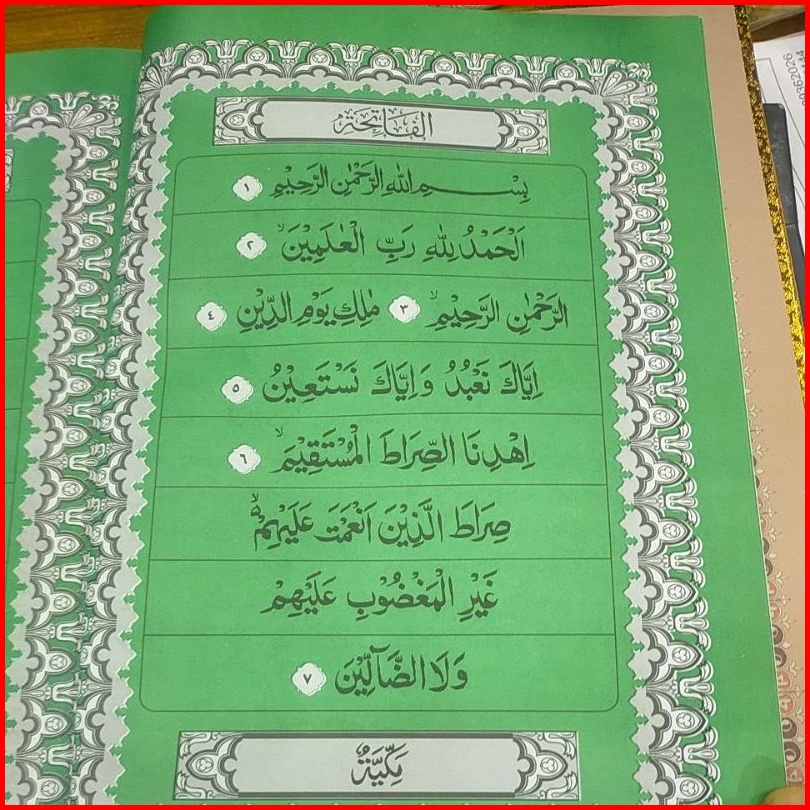 الفاتحة
بِسْــــمِ اللهِ الرَّحْمٰنِ الرَّحِيْمِ ١
اَلْحَمْدُ لِلّٰهِ رَبِّ الْعٰلَمِيْنَۙ ٢
الرَّحْمٰنِ الرَّحِيْمِۙ ٣ مٰلِكِ يَوْمِ الدِّيْنِ ٤
اِيَّاكَ نَعْبُدُ وَاِيَّاكَ نَسْتَعِيْنُ ٥
اِهْدِنَا الصِّرَاطَ الْمُسْتَقِيْمَۙ ٦
صِرَاطَ الَّذِيْنَ اَنْعَمْتَ عَلَيْهِمْ ەۙ
غَيْرِ الْمَغْضُوْبِ عَلَيْهِمْ
وَلَا الضَّآلِّيْنَ ٧
مَكِّيَّةٌ